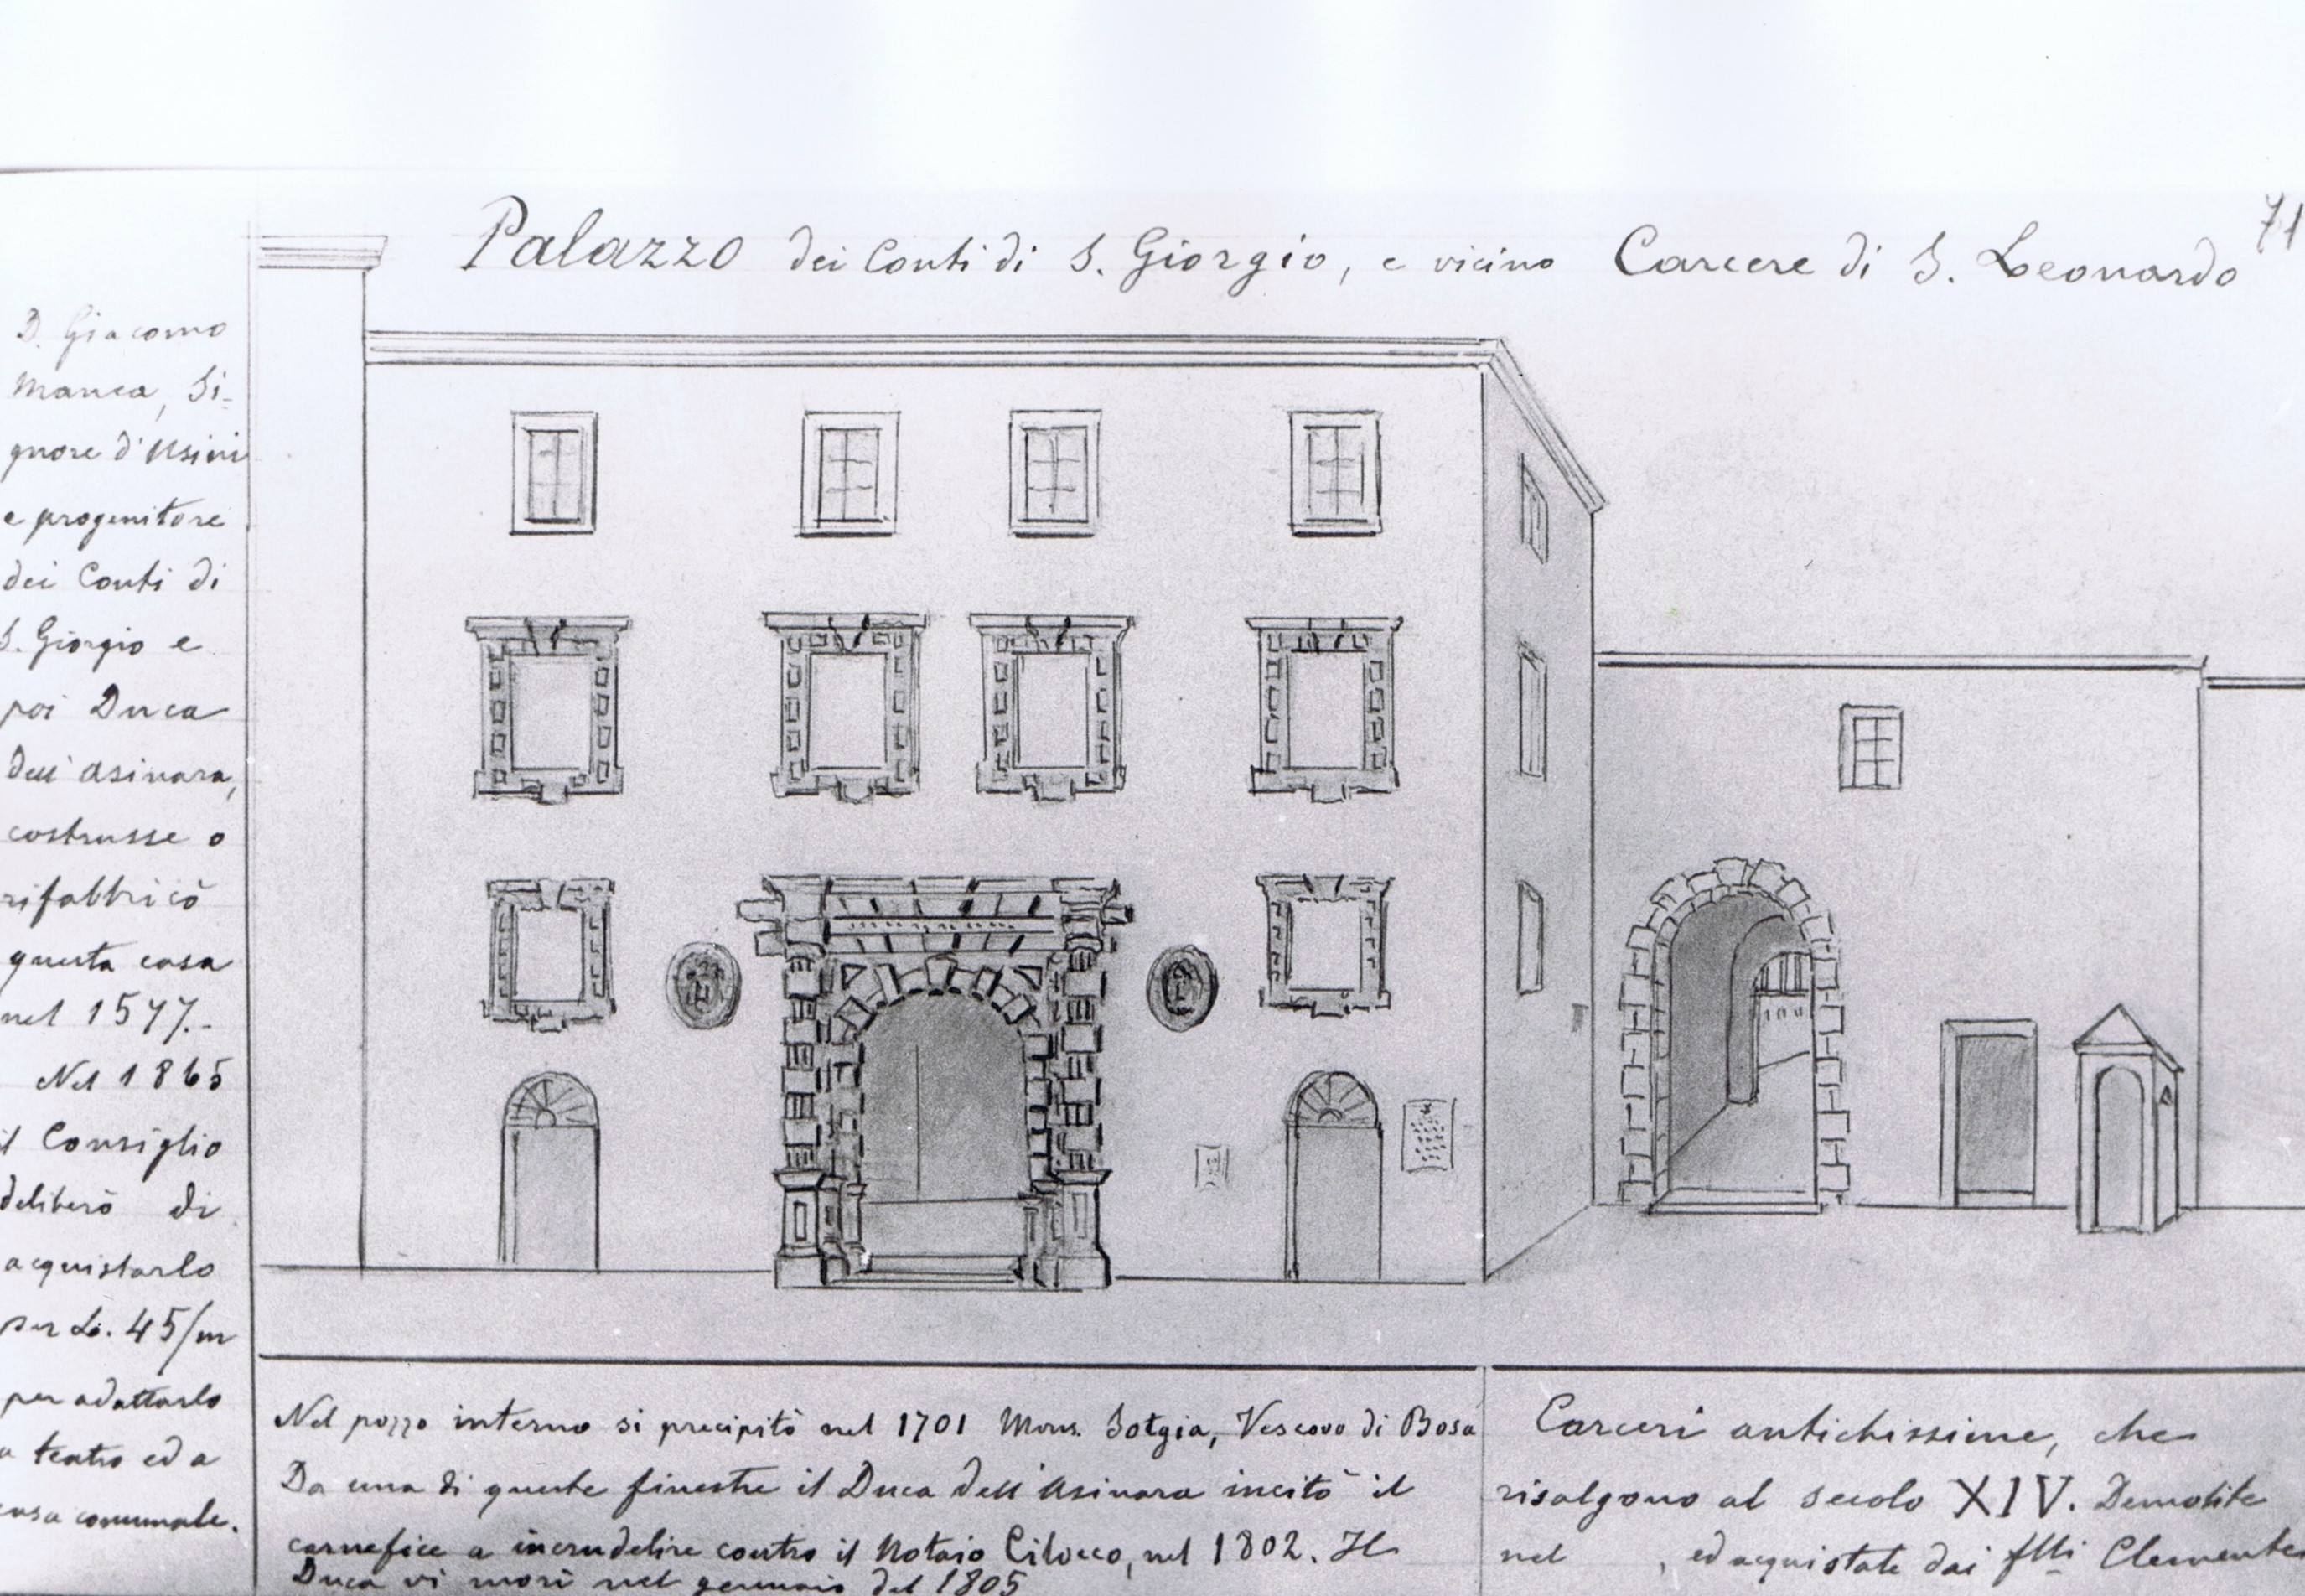 Palazzo dei Conti di S. Giorgio, e vicino Carcere di S. Leonardo
71
D. Giacomo
Manca, Si-
gnore d'Usini
e progenitore
dei Conti di
S. Giorgio e
poi Duca
dell'Asinara,
costrusse o
rifabbricò
questa casa
nel 1577.-
Nel 1865
il Consiglio
deliberò di
acquistarlo
per L. 45/m
per adattarlo
a teatro ed a
casa comunale.
Nel pozzo interno si precipitò nel 1701 Mons. Sotgia, Vescovo di Bosa
Da una di queste finestre il Duca dell'Asinara incitò il
carnefice a incrudelire contro il Notaio Cilocco, nel 1802. Il
Duca vi morì nel gennaio del 1805
Carceri antichissime, che
risalgono al secolo XIV. Demolite
nel , ed acquistate dai flli Clemente